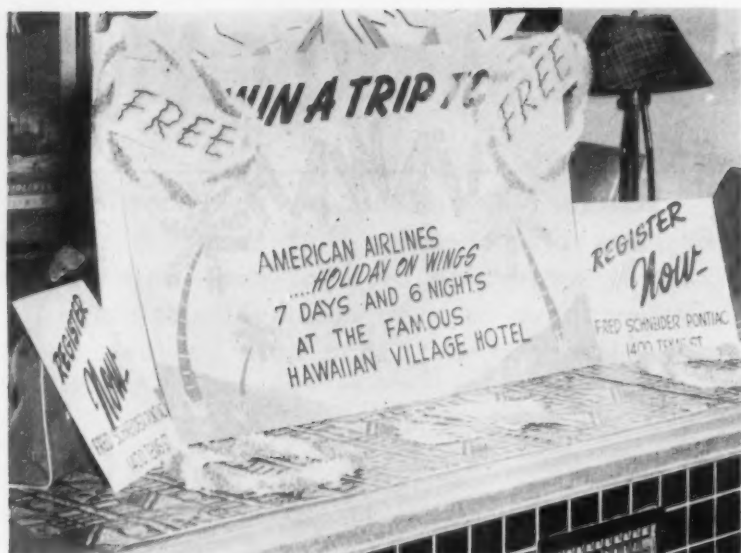 FREE
WIN A TRIP TO
FREE
AMERICAN AIRLINES
....HOLIDAY ON WINGS
7 DAYS AND 6 NIGHTS
AT THE FAMOUS
HAWAIIAN VILLAGE HOTEL
REGISTER
Now
FRED SCHNEIDER PONTIAC
1400 TEXAS ST.
REGISTER
Now-
FRED SCHNEIDER PONTIAC
1400 TEXAS ST.